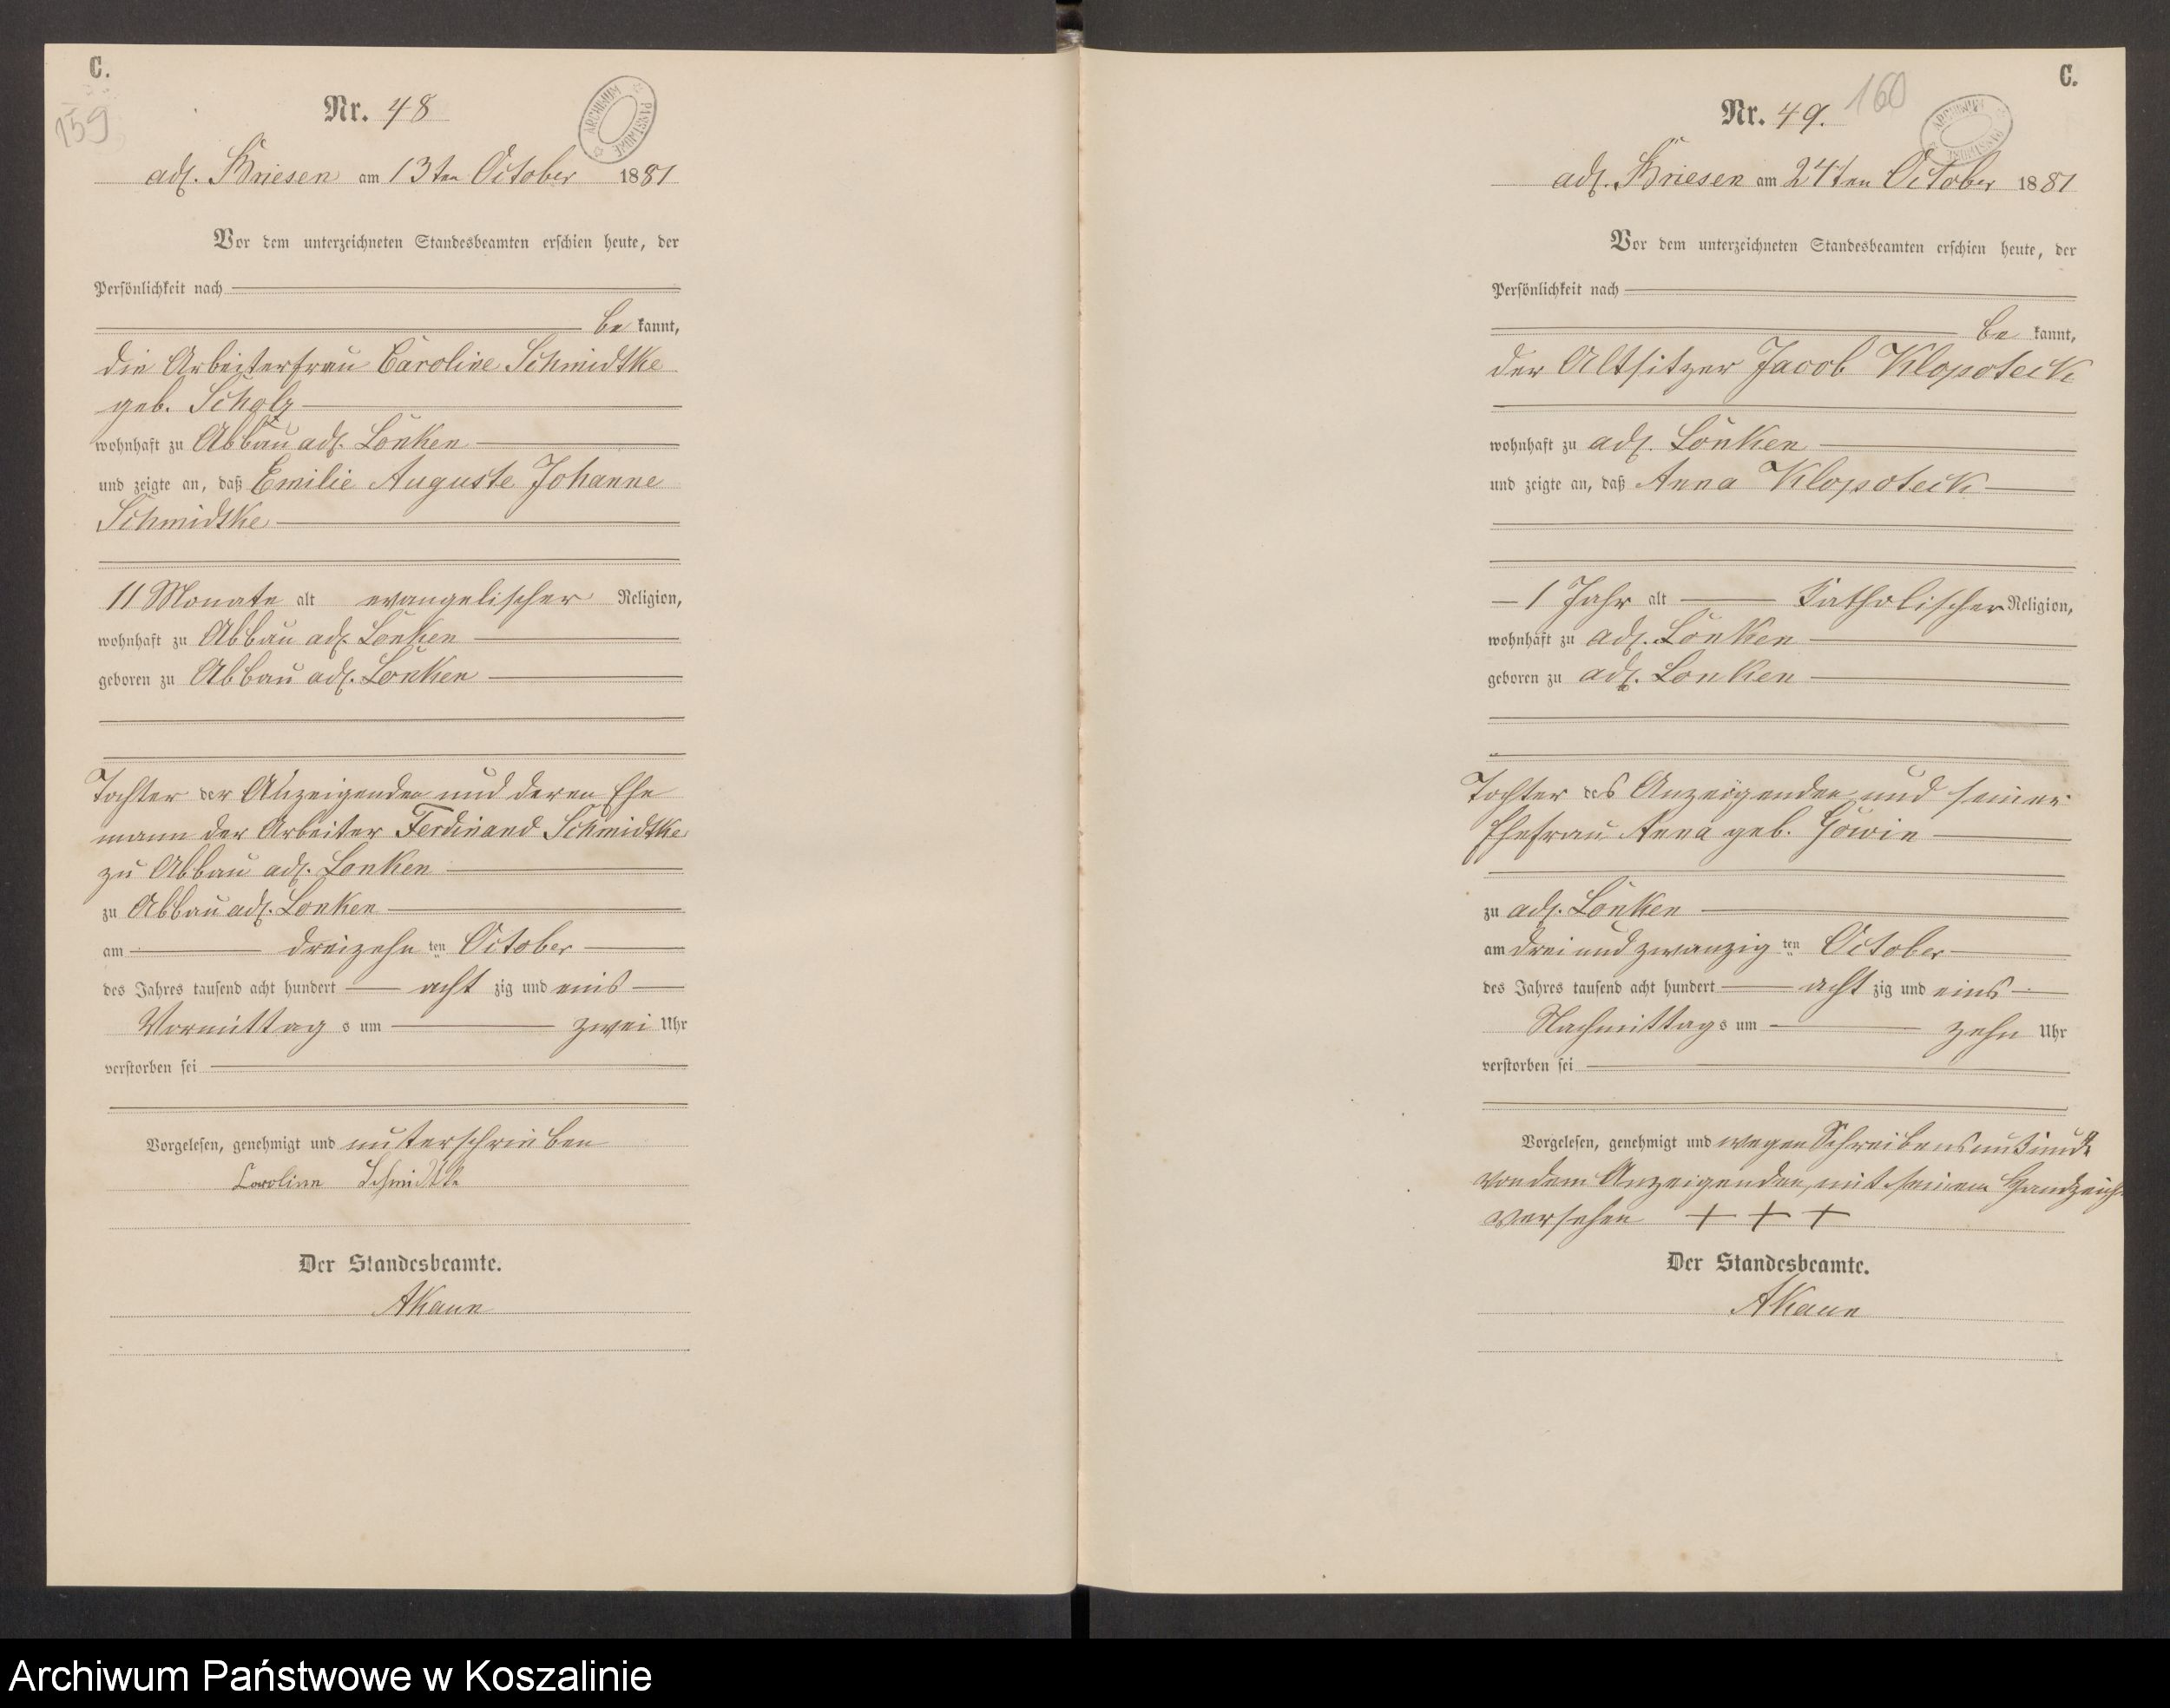 C.
159
Nr. 48
ARCHIWUM PAŃSTWOWE
adl. Briesen am 13ten October 1881
Vor dem unterzeichneten Standesbeamten erschien heute, der
Persönlichkeit nach
be kannt,
die Arbeiterfrau Caroline Schmidtke
geb. Scholz
wohnhaft zu Abbau adl. Lonken
und zeigte an, daß Emilie Auguste Johanne
Schmidtke
11 Monate alt evangelischer Religion,
wohnhaft zu Abbau adl. Lonken
geboren zu Abbau adl. Lonken
Tochter der Anzeigenden und deren Ehe
mann der Arbeiter Ferdinand Schmidtke
zu Abbau adl. Lonken
zu Abbau adl. Lonken
am dreizehn ten October
des Jahres tausend acht hundert acht zig und eins
Vormittag s um zwei Uhr
verstorben sei
Vorgelesen, genehmigt und unterschrieben
Caroline Schmidtke
Der Standesbeamte.
AKaun
C.
160
Nr. 49.
ARCHIWUM PAŃSTWOWE
adl. Briesen am 24ten October 1881
Vor dem unterzeichneten Standesbeamten erschien heute, der
Persönlichkeit nach
be kannt,
der Altsitzer Jacob Klopoteck
wohnhaft zu adl. Lonken
und zeigte an, daß Anna Klopoteck
1 Jahr alt katholischer Religion,
wohnhaft zu adl. Lonken
geboren zu adl. Lonken
Tochter des Anzeigenden und seiner
Ehefrau Anna geb. Gowin
zu adl. Lonken
am drei und zwanzig ten October
des Jahres tausend acht hundert acht zig und eins
Nachmittag s um zehn Uhr
verstorben sei
Vorgelesen, genehmigt und wegen Schreibensunkunde
von dem Anzeigenden, mit seinem Handzeich
versehen + + +
Der Standesbeamte.
AKaun
Archiwum Państwowe w Koszalinie